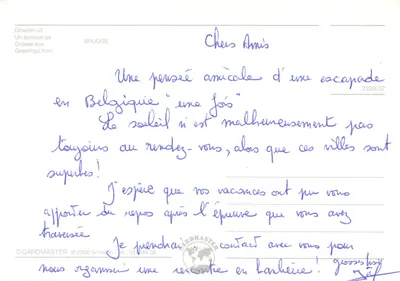 Groeten uit
Un bonjour de
Grüsse aus
Greetings from
BRUGGE
Chers Amis
Une pensée amicale d'une escapade
en Belgique "une fois"
Le soleil n'est malheureusement pas
toujours au rendez-vous, alors que ces villes sont
superbes!
J'espère que vos vacances ont pu vous
apporter du repos après l'épreuve que vous avez
traversée
Je prendrai contact avec vous pour
nous organiser une rencontre en banlieue! grosses bises
CARDMASTER